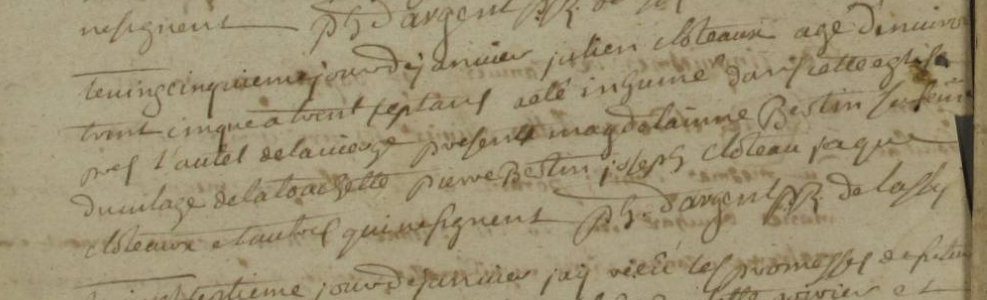 nesignent ph dargent
le vingcinquieme jour de janvier julien cloteaux agé denviron
trent cinque a trent sept ans a eté inhumé dans cette eglise
pres l'autel de la vierge presents magdelainne Bestin
du vilage de la touchette pierre Bestin joseph cloteau jaque
cloteaux et autres qui ne signent ph dargent de lassy
jour de janvier jay les promesses de